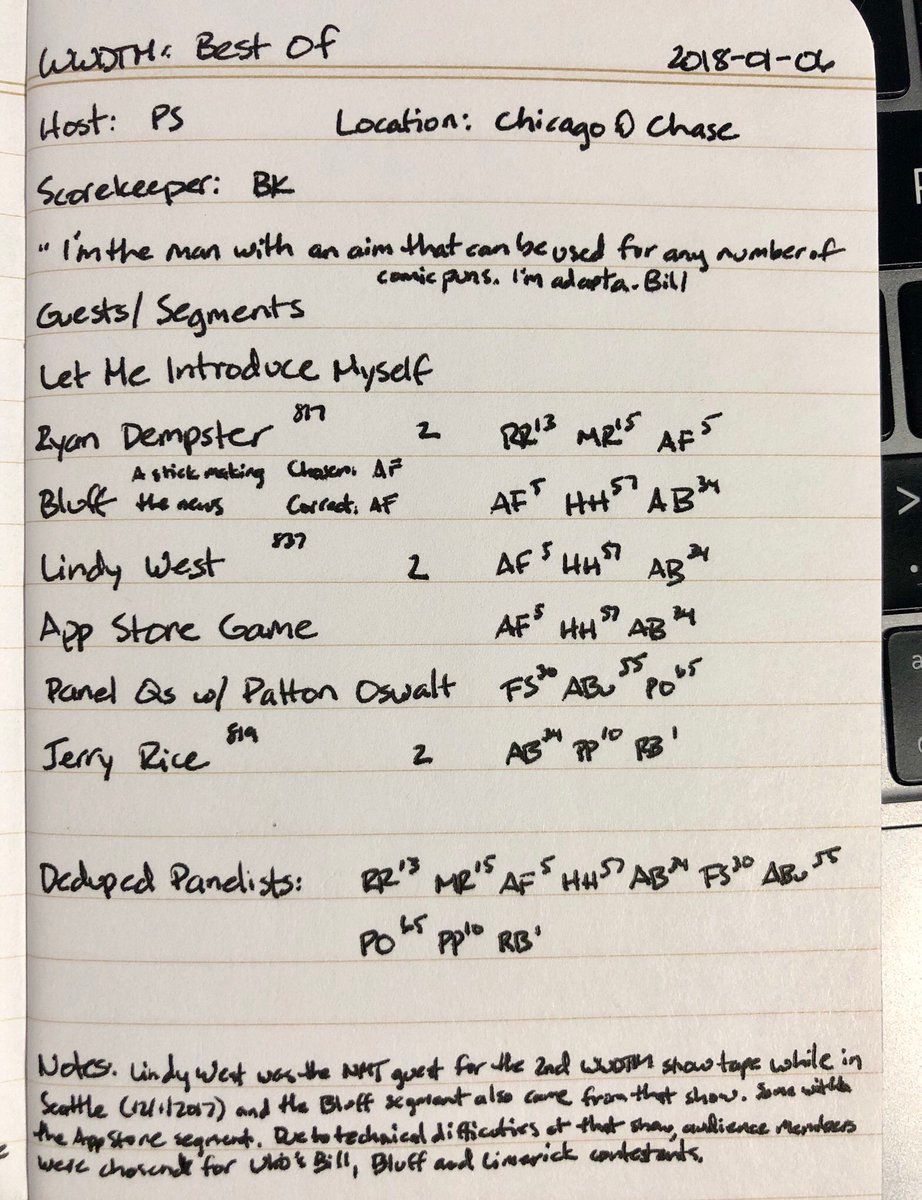 WWDTM: Best Of 2018-01-06
Host: PS Location: Chicago @ Chase
Scorekeeper: BK
"I'm the man with an aim that can be used for any number of
comic puns. I'm adapta-Bill
Guests/Segments
Let Me Introduce Myself
Ryan Dempster 817 2 RR13 MR15 AF5
A stick making Chosen: AF
Bluff the news Correct: AF AF5 HH57 AB34
Lindy West 837 2 AF5 HH57 AB34
App Store Game AF5 HH57 AB34
Panel Qs w/ Patton Oswalt FS30 ABu55 PO65
Jerry Rice 819 2 AB34 PP10 RB1
Deduped Panelists: RR13 MR15 AF5 HH57 AB34 FS30 ABu55
PO65 PP10 RB1
Notes: Lindy West was the NMJ guest for the 2nd WWDTM show tape while in
Seattle (12/1/2017) and the Bluff segment also came from that show. Same with
the App Store segment. Due to technical difficulties at that show, audience members
were chosen for Who's Bill, Bluff and Limerick contestants.